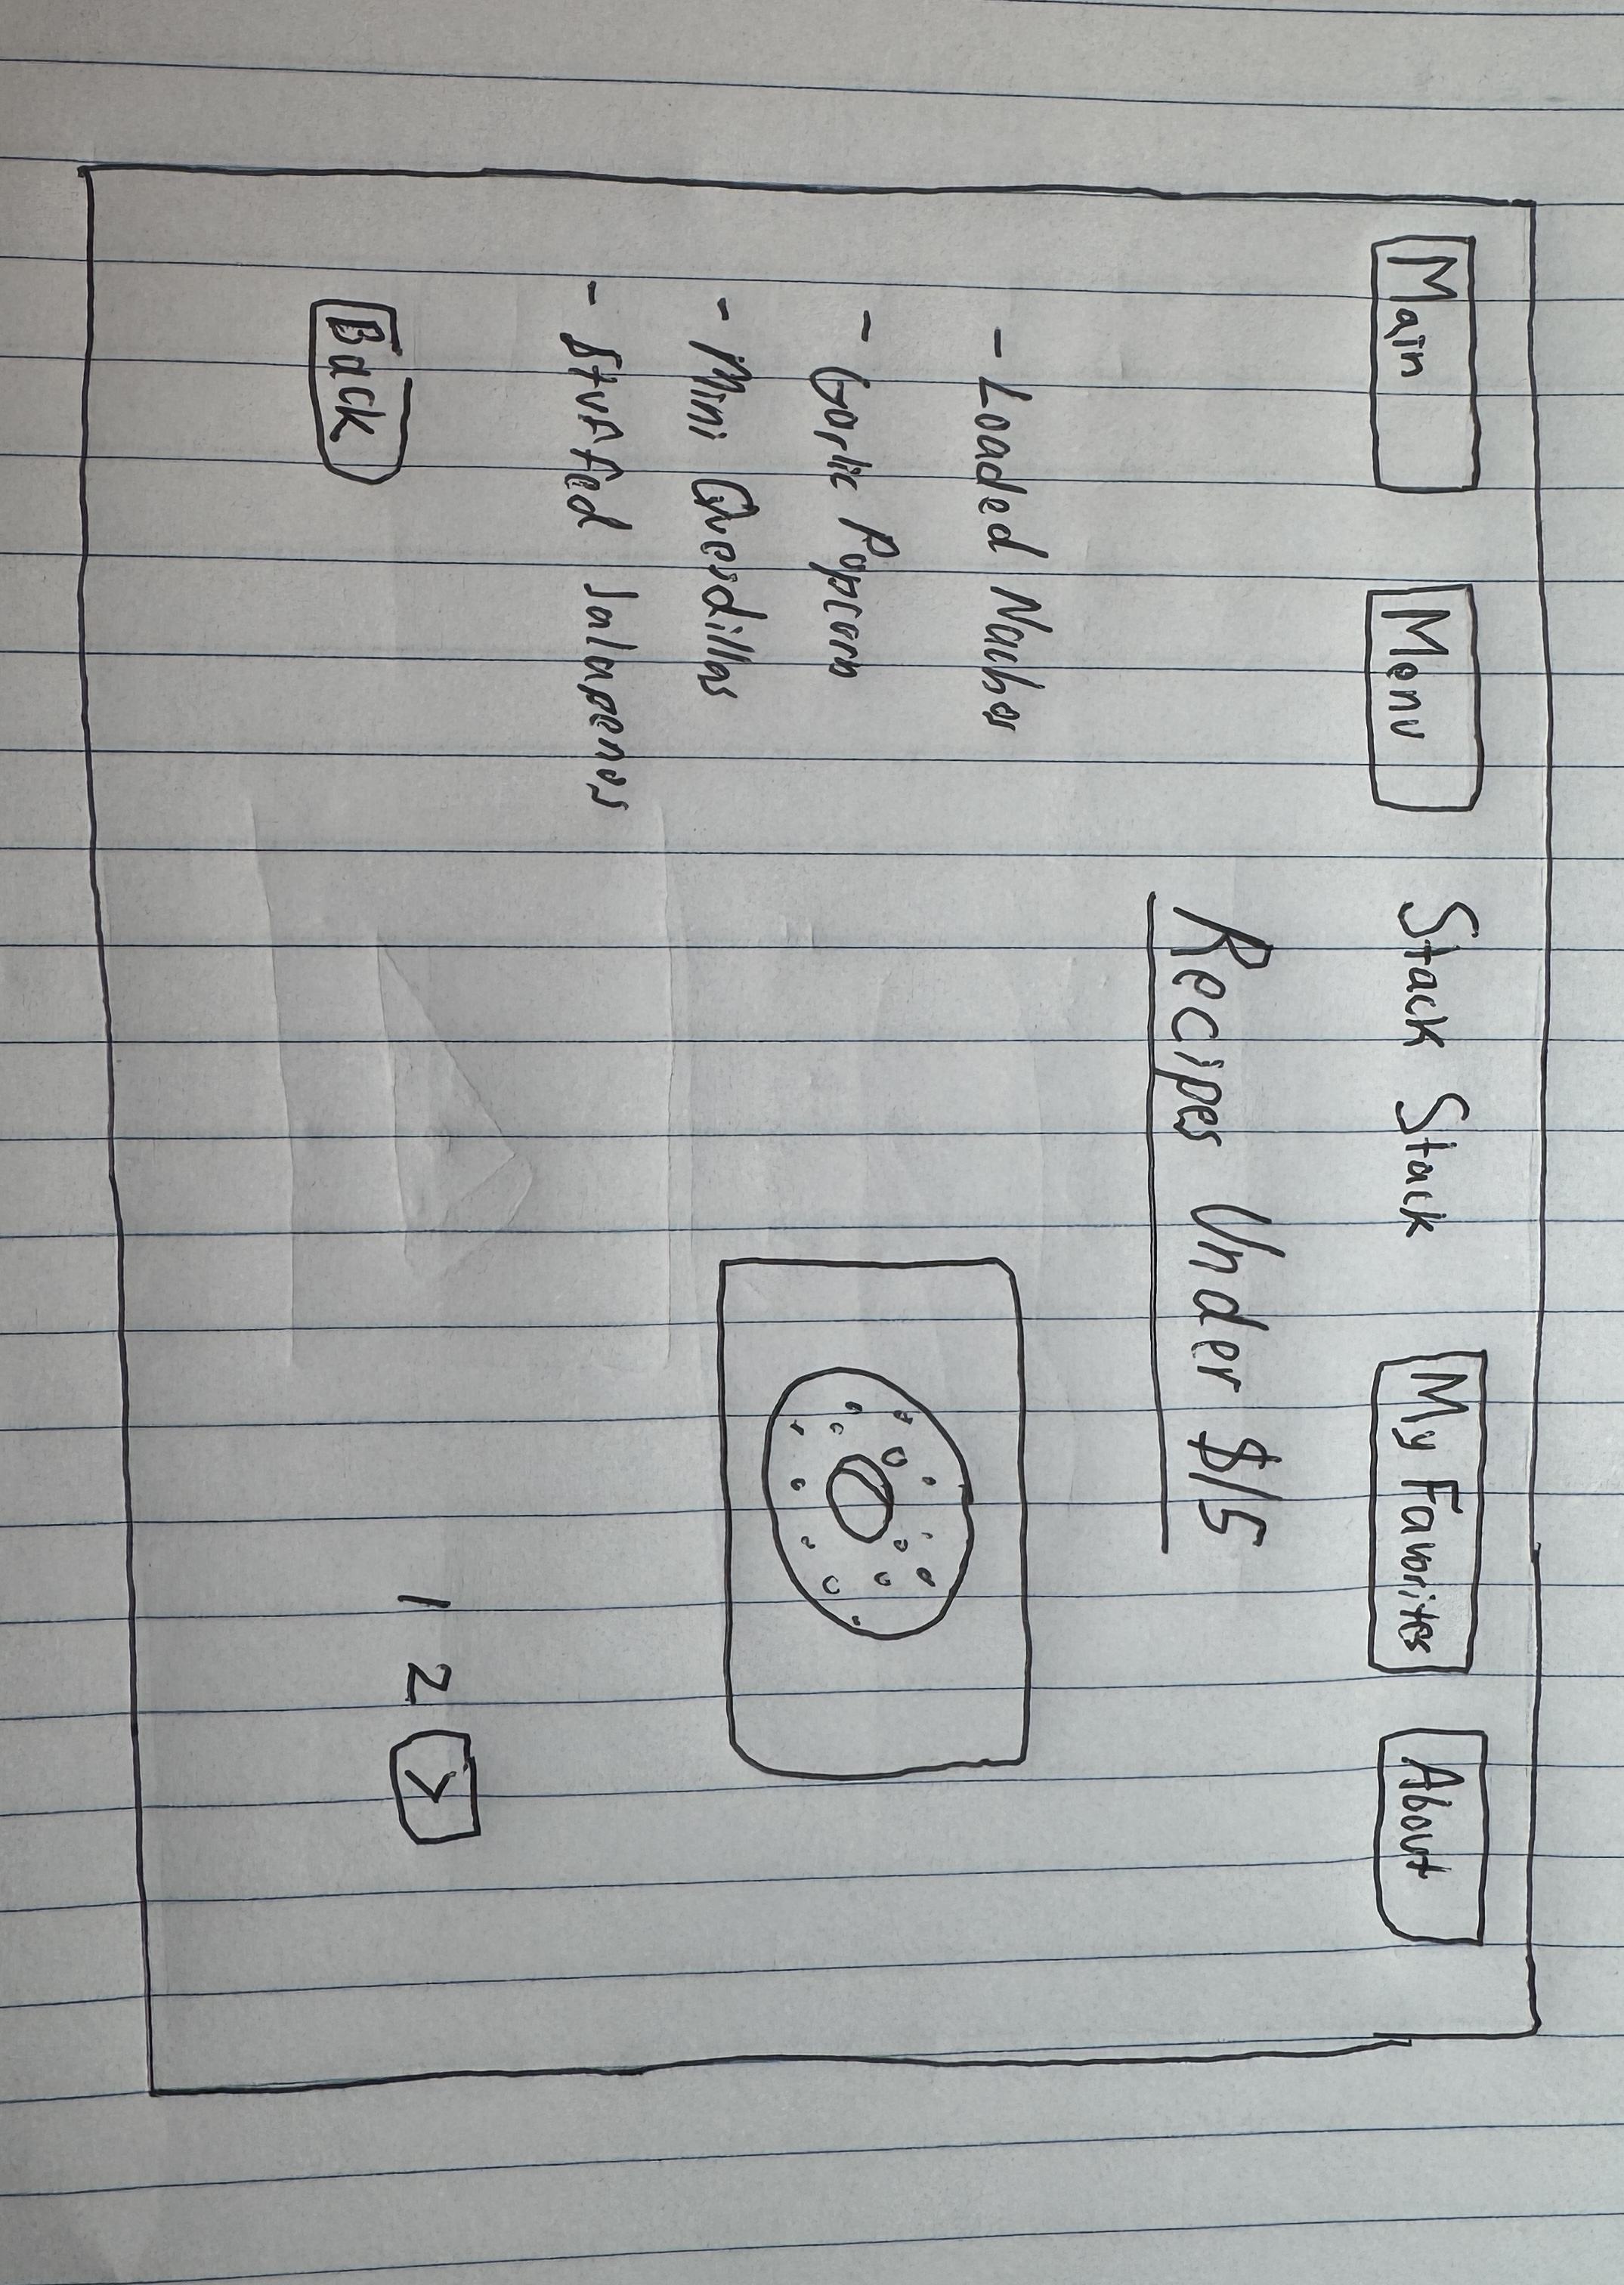 Main Menu Stack Stack My Favorites About
Recipes Under $15
- Loaded Nachos
- Garlic Popcorn
- Mini Quesdillas
- Stuffed Jalapenos
1 2 >
Back